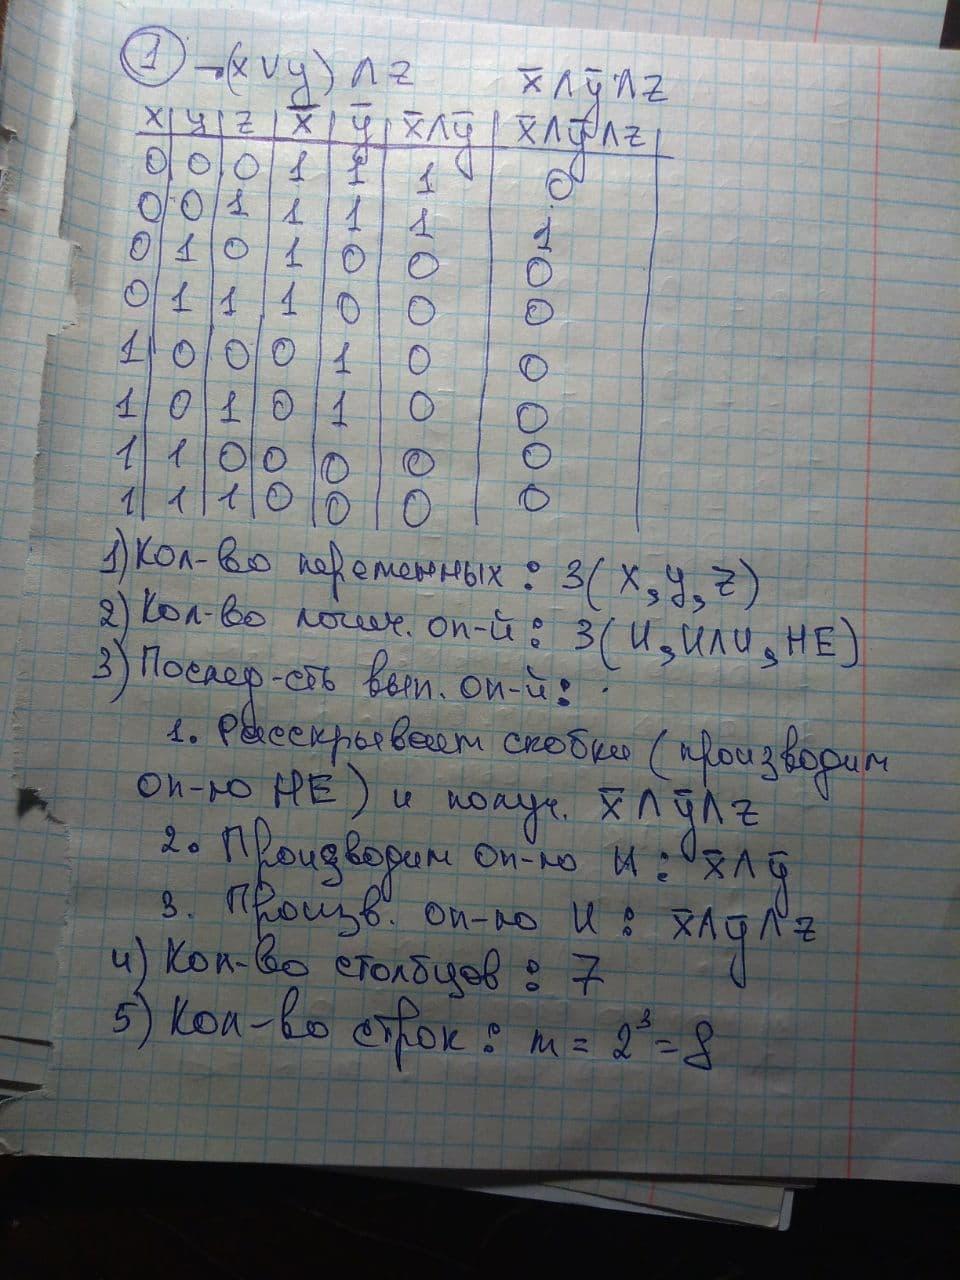 1 ¬(x∨y)∧z x̄∧ȳ∧z
x y z x̄ ȳ x̄∧ȳ x̄∧ȳ∧z
0 0 0 1 1 1 0
0 0 1 1 1 1 1
0 1 0 1 0 0 0
0 1 1 1 0 0 0
1 0 0 0 1 0 0
1 0 1 0 1 0 0
1 1 0 0 0 0 0
1 1 1 0 0 0 0
1) Кол-во переменных: 3(x,y,z)
2) Кол-во логич. оп-й: 3(И,ИЛИ,НЕ)
3) Послед-сть вып. оп-й:
1. Расскрываем скобки (производим
оп-ю НЕ) и получ. x̄∧ȳ∧z
2. Производим оп-ю И: x̄∧ȳ
3. Произв. оп-ю И: x̄∧ȳ∧z
4) Кол-во столбцов: 7
5) Кол-во строк: m = 2³ = 8